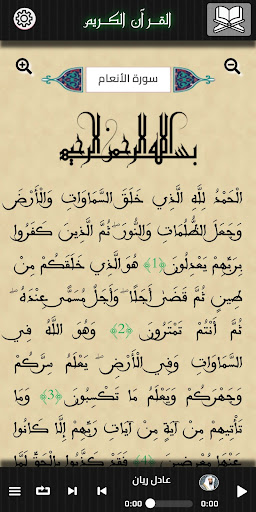 القرآن الكريم
سورة الأنعام
بسم الله الرحمن الرحيم
الْحَمْدُ لِلَّهِ الَّذِي خَلَقَ السَّمَاوَاتِ وَالْأَرْضَ
وَجَعَلَ الظُّلُمَاتِ وَالنُّورَ ۖ ثُمَّ الَّذِينَ كَفَرُوا
بِرَبِّهِمْ يَعْدِلُونَ ﴿1﴾ هُوَ الَّذِي خَلَقَكُمْ مِنْ
طِينٍ ثُمَّ قَضَىٰ أَجَلًا ۖ وَأَجَلٌ مُسَمًّى عِنْدَهُ ۖ
ثُمَّ أَنْتُمْ تَمْتَرُونَ ﴿2﴾ وَهُوَ اللَّهُ فِي
السَّمَاوَاتِ وَفِي الْأَرْضِ ۖ يَعْلَمُ سِرَّكُمْ
وَجَهْرَكُمْ وَيَعْلَمُ مَا تَكْسِبُونَ ﴿3﴾ وَمَا
تَأْتِيهِمْ مِنْ آيَةٍ مِنْ آيَاتِ رَبِّهِمْ إِلَّا كَانُوا
عَنْهَا مُعْرِضِينَ ﴿4﴾ فَقَدْ كَذَّبُوا بِالْحَقِّ لَمَّا
عادل ريان
0:00 0:00